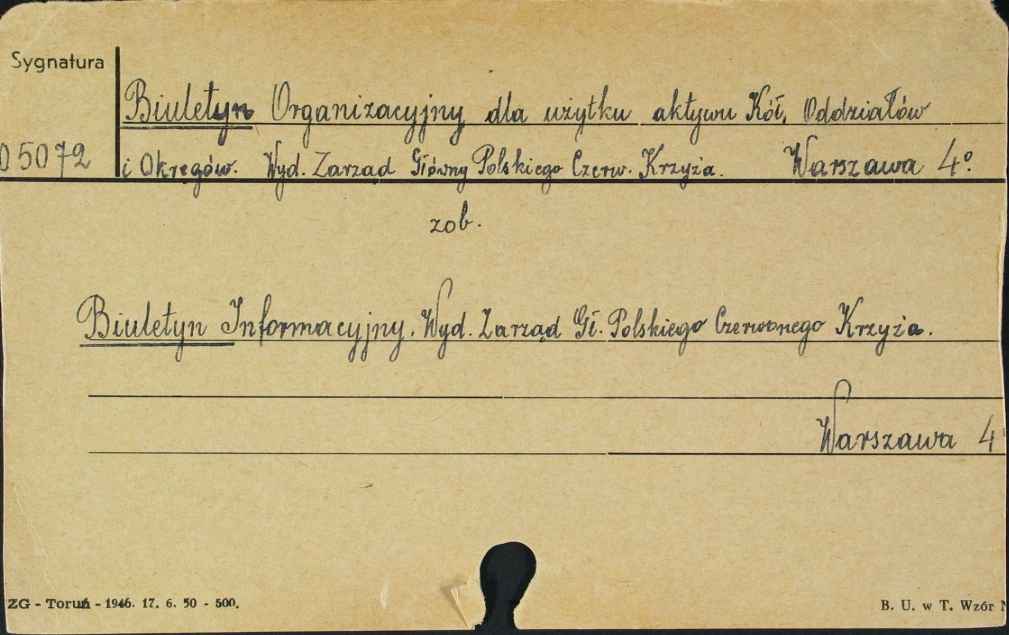 Sygnatura
Biuletyn Organizacyjny dla użytku aktywu Kół, Oddziałów
05072 i Okręgów. Wyd. Zarząd Główny Polskiego Czerw. Krzyża. Warszawa 4°.
zob.
Biuletyn Informacyjny. Wyd. Zarząd Gł. Polskiego Czerwonego Krzyża.
Warszawa 4
ZG - Toruń - 1946. 17. 6. 50 - 500. B. U. w T. Wzór